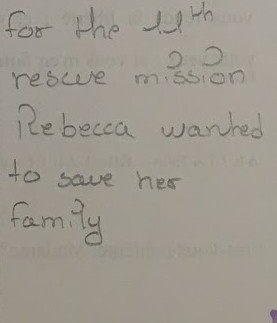 for the 11th
rescue mission
Rebecca wanted
to save her
family